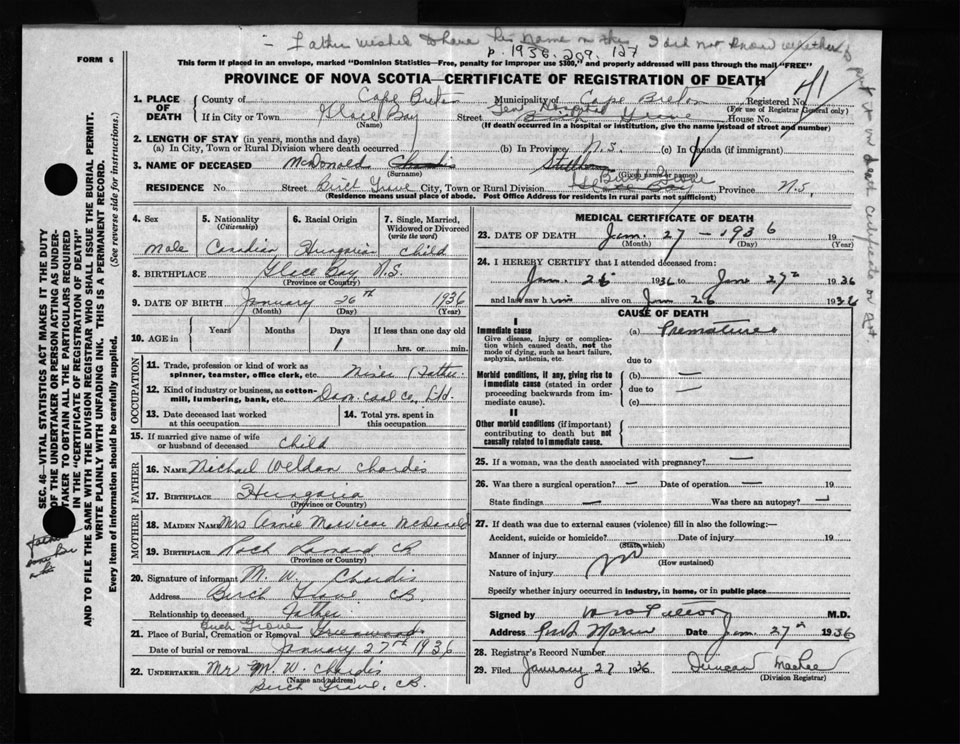 Father wished to have his name on this I did not know whether to
put it in death certificate or not.
p. 1936. 209. 127
FORM 6
This form if placed in an envelope, marked "Dominion Statistics—Free, penalty for improper use $300," and properly addressed will pass through the mail "FREE"
PROVINCE OF NOVA SCOTIA—CERTIFICATE OF REGISTRATION OF DEATH
SEC. 46—VITAL STATISTICS ACT MAKES IT THE DUTY
OF THE UNDERTAKER OR PERSON ACTING AS UNDER-
TAKER TO OBTAIN ALL THE PARTICULARS REQUIRED
IN THE "CERTIFICATE OF REGISTRATION OF DEATH"
AND TO FILE THE SAME WITH THE DIVISION REGISTRAR WHO SHALL ISSUE THE BURIAL PERMIT.
WRITE PLAINLY WITH UNFADING INK. THIS IS A PERMANENT RECORD.
Every item of information should be carefully supplied. (See reverse side for instructions.)
1. PLACE OF DEATH County of Cape Breton Municipality of Cape Breton Registered No. 41
(For use of Registrar General only)
If in City or Town Glace Bay Street Gen Hospital Birch Grove House No.
(Name) (If death occurred in a hospital or institution, give the name instead of street and number)
2. LENGTH OF STAY (in years, months and days)
(a) In City, Town or Rural Division where death occurred (b) In Province N.S. (c) In Canada (if immigrant)
3. NAME OF DECEASED McDonald Chardis Stillborn
(Surname) (Given name or names)
RESIDENCE No. Street Birch Grove City, Town or Rural Division Birch Grove Glace Bay Province N.S.
(Residence means usual place of abode. Post Office Address for residents in rural parts not sufficient)
4. Sex 5. Nationality (Citizenship) 6. Racial Origin 7. Single, Married, Widowed or Divorced (write the word)
Male Canadian Hungarian Child
8. BIRTHPLACE Glace Bay N.S.
(Province or Country)
9. DATE OF BIRTH January 26th 1936
(Month) (Day) (Year)
10. AGE in Years Months Days If less than one day old
1 hrs. or min.
OCCUPATION
11. Trade, profession or kind of work as
spinner, teamster, office clerk, etc. Miner (Father.
12. Kind of industry or business, as cotton-
mill, lumbering, bank, etc. Dom. Coal Co, Ltd.
13. Date deceased last worked at this occupation 14. Total yrs. spent in this occupation
15. If married give name of wife
or husband of deceased child
FATHER
16. NAME Michael Weldan Chardis
17. BIRTHPLACE Hungaria
(Province or Country)
MOTHER
18. MAIDEN NAME Mrs Annie McDonald
19. BIRTHPLACE CB
(Province or Country)
20. Signature of informant M. W. Chardis
Address Birch Grove CB.
Relationship to deceased Father
21. Place of Burial, Cremation or Removal Birch Grove Greenwood
Date of burial or removal January 27th 1936
22. UNDERTAKER Mr M. W. Chardis
(Name and address)
Birch Grove, CB.
MEDICAL CERTIFICATE OF DEATH
23. DATE OF DEATH Jan. 27 - 1936 19
(Month) (Day) (Year)
24. I HEREBY CERTIFY that I attended deceased from:
Jan. 26 1936 to Jan 27th 1936
and last saw him alive on Jan 26 1936
CAUSE OF DEATH
I
Immediate cause (a) Premature
Give disease, injury or complica-
tion which caused death, not the
mode of dying, such as heart failure,
asphyxia, asthenia, etc. due to
Morbid conditions, if any, giving rise to (b) —
immediate cause (stated in order due to —
proceeding backwards from im-
mediate cause). (c)
II
Other morbid conditions (if important)
contributing to death but not
causally related to immediate cause.
25. If a woman, was the death associated with pregnancy? —
26. Was there a surgical operation? — Date of operation —
State findings — Was there an autopsy? —
27. If death was due to external causes (violence) fill in also the following:—
Accident, suicide or homicide? Date of injury 19
(State which)
Manner of injury
(How sustained)
Nature of injury
Specify whether injury occurred in industry, in home, or in public place
Signed by M.D.
Address Port Morien Date Jan. 27th 1936
28. Registrar's Record Number
29. Filed January 27 1936 Duncan MacRae
(Division Registrar)